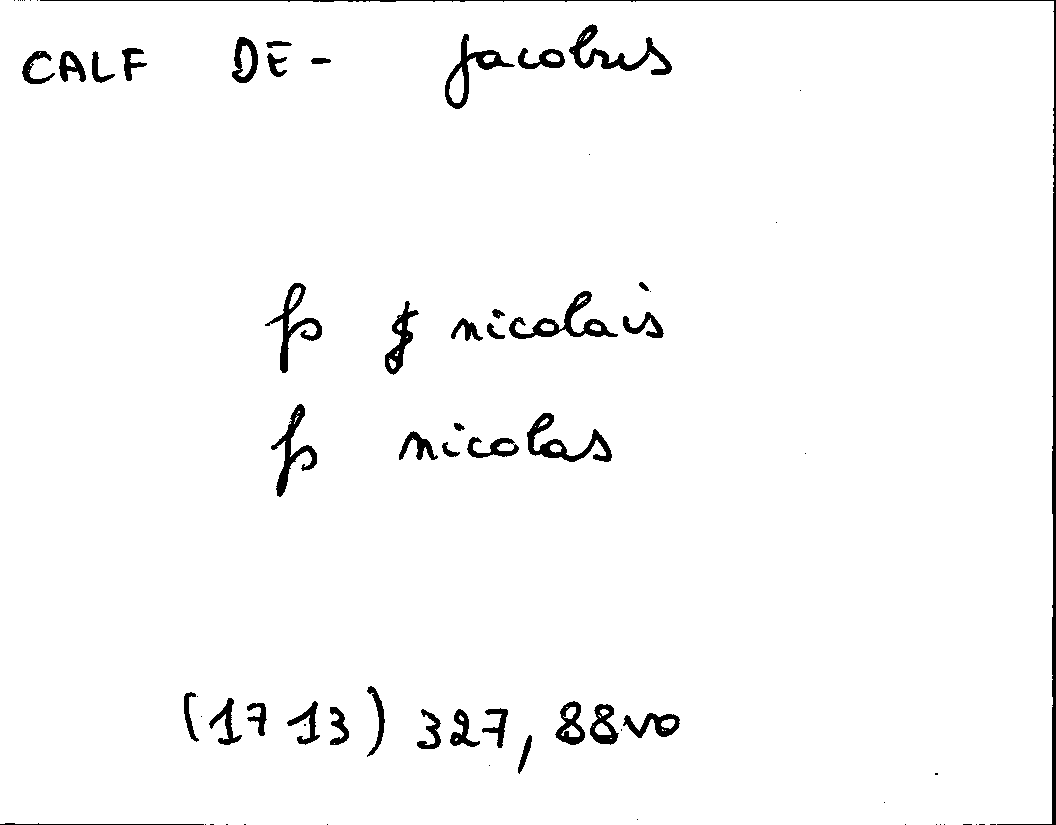 CALF DE- Jacobus
fs nicolais
fs nicolas
(1713) 327, 88vo